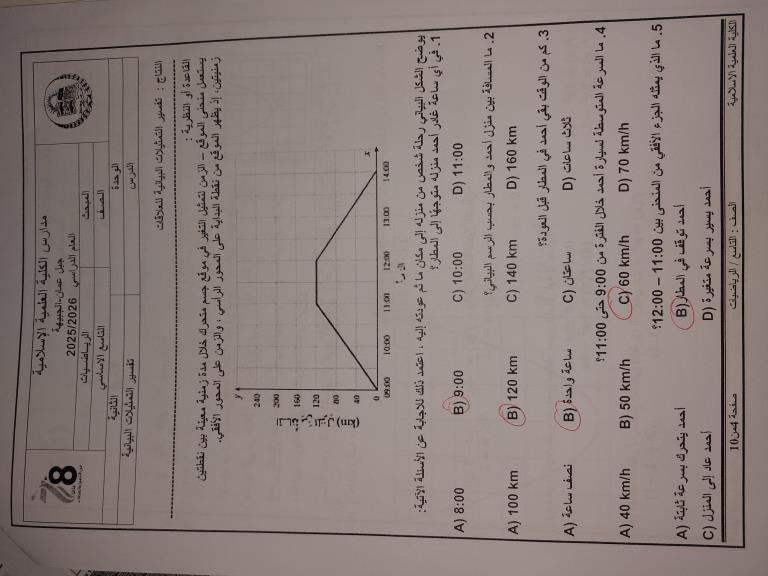 مدارس الكلية العلمية الإسلامية
جبل عمان-الجبيهة
2025/2026 العام الدراسي
المبحث الرياضيات
الصف التاسع الاساسي
الوحدة الثانية
الدرس تفسير التمثيلات البيانية
النتاج : تفسير التمثيلات البيانية للعلاقات
القاعدة أو النظرية :
يستعمل منحنى الموقع – الزمن لتمثيل التغير في موقع جسم متحرك خلال مدة زمنية معينة بين نقطتين
زمنيتين، إذ يظهر الموقع من نقطة البداية على المحور الرأسي ، والزمن على المحور الأفقي.
y
240
200
160
120
80
40
0
(km)
09:00 10:00 11:00 12:00 13:00 14:00
x
يوضح الشكل البياني رحلة شخص من منزله إلى مكان ما ثم عودته إليه ، اعتمد ذلك للاجابة عن الأسئلة الآتية:
1. في أي ساعة غادر أحمد منزله متوجهًا إلى المطار؟
A) 8:00 B) 9:00 C) 10:00 D) 11:00
2. ما المسافة بين منزل أحمد والمطار بحسب الرسم البياني؟
A) 100 km B) 120 km C) 140 km D) 160 km
3. كم من الوقت بقي احمد في المطار قبل العودة؟
A) نصف ساعة B) ساعة واحدة C) ساعتان D) ثلاث ساعات
4. ما السرعة المتوسطة لسيارة أحمد خلال الفترة من 9:00 حتى 11:00؟
A) 40 km/h B) 50 km/h C) 60 km/h D) 70 km/h
5. ما الذي يمثله الجزء الأفقي من المنحنى بين 11:00 – 12:00؟
A) أحمد يتحرك بسرعة ثابتة B) أحمد توقف في المطار
C) أحمد عاد إلى المنزل D) أحمد يسير بسرعة متغيرة
الكلية العلمية الاسلامية الصف : التاسع / الرياضيات صفحة 4من10